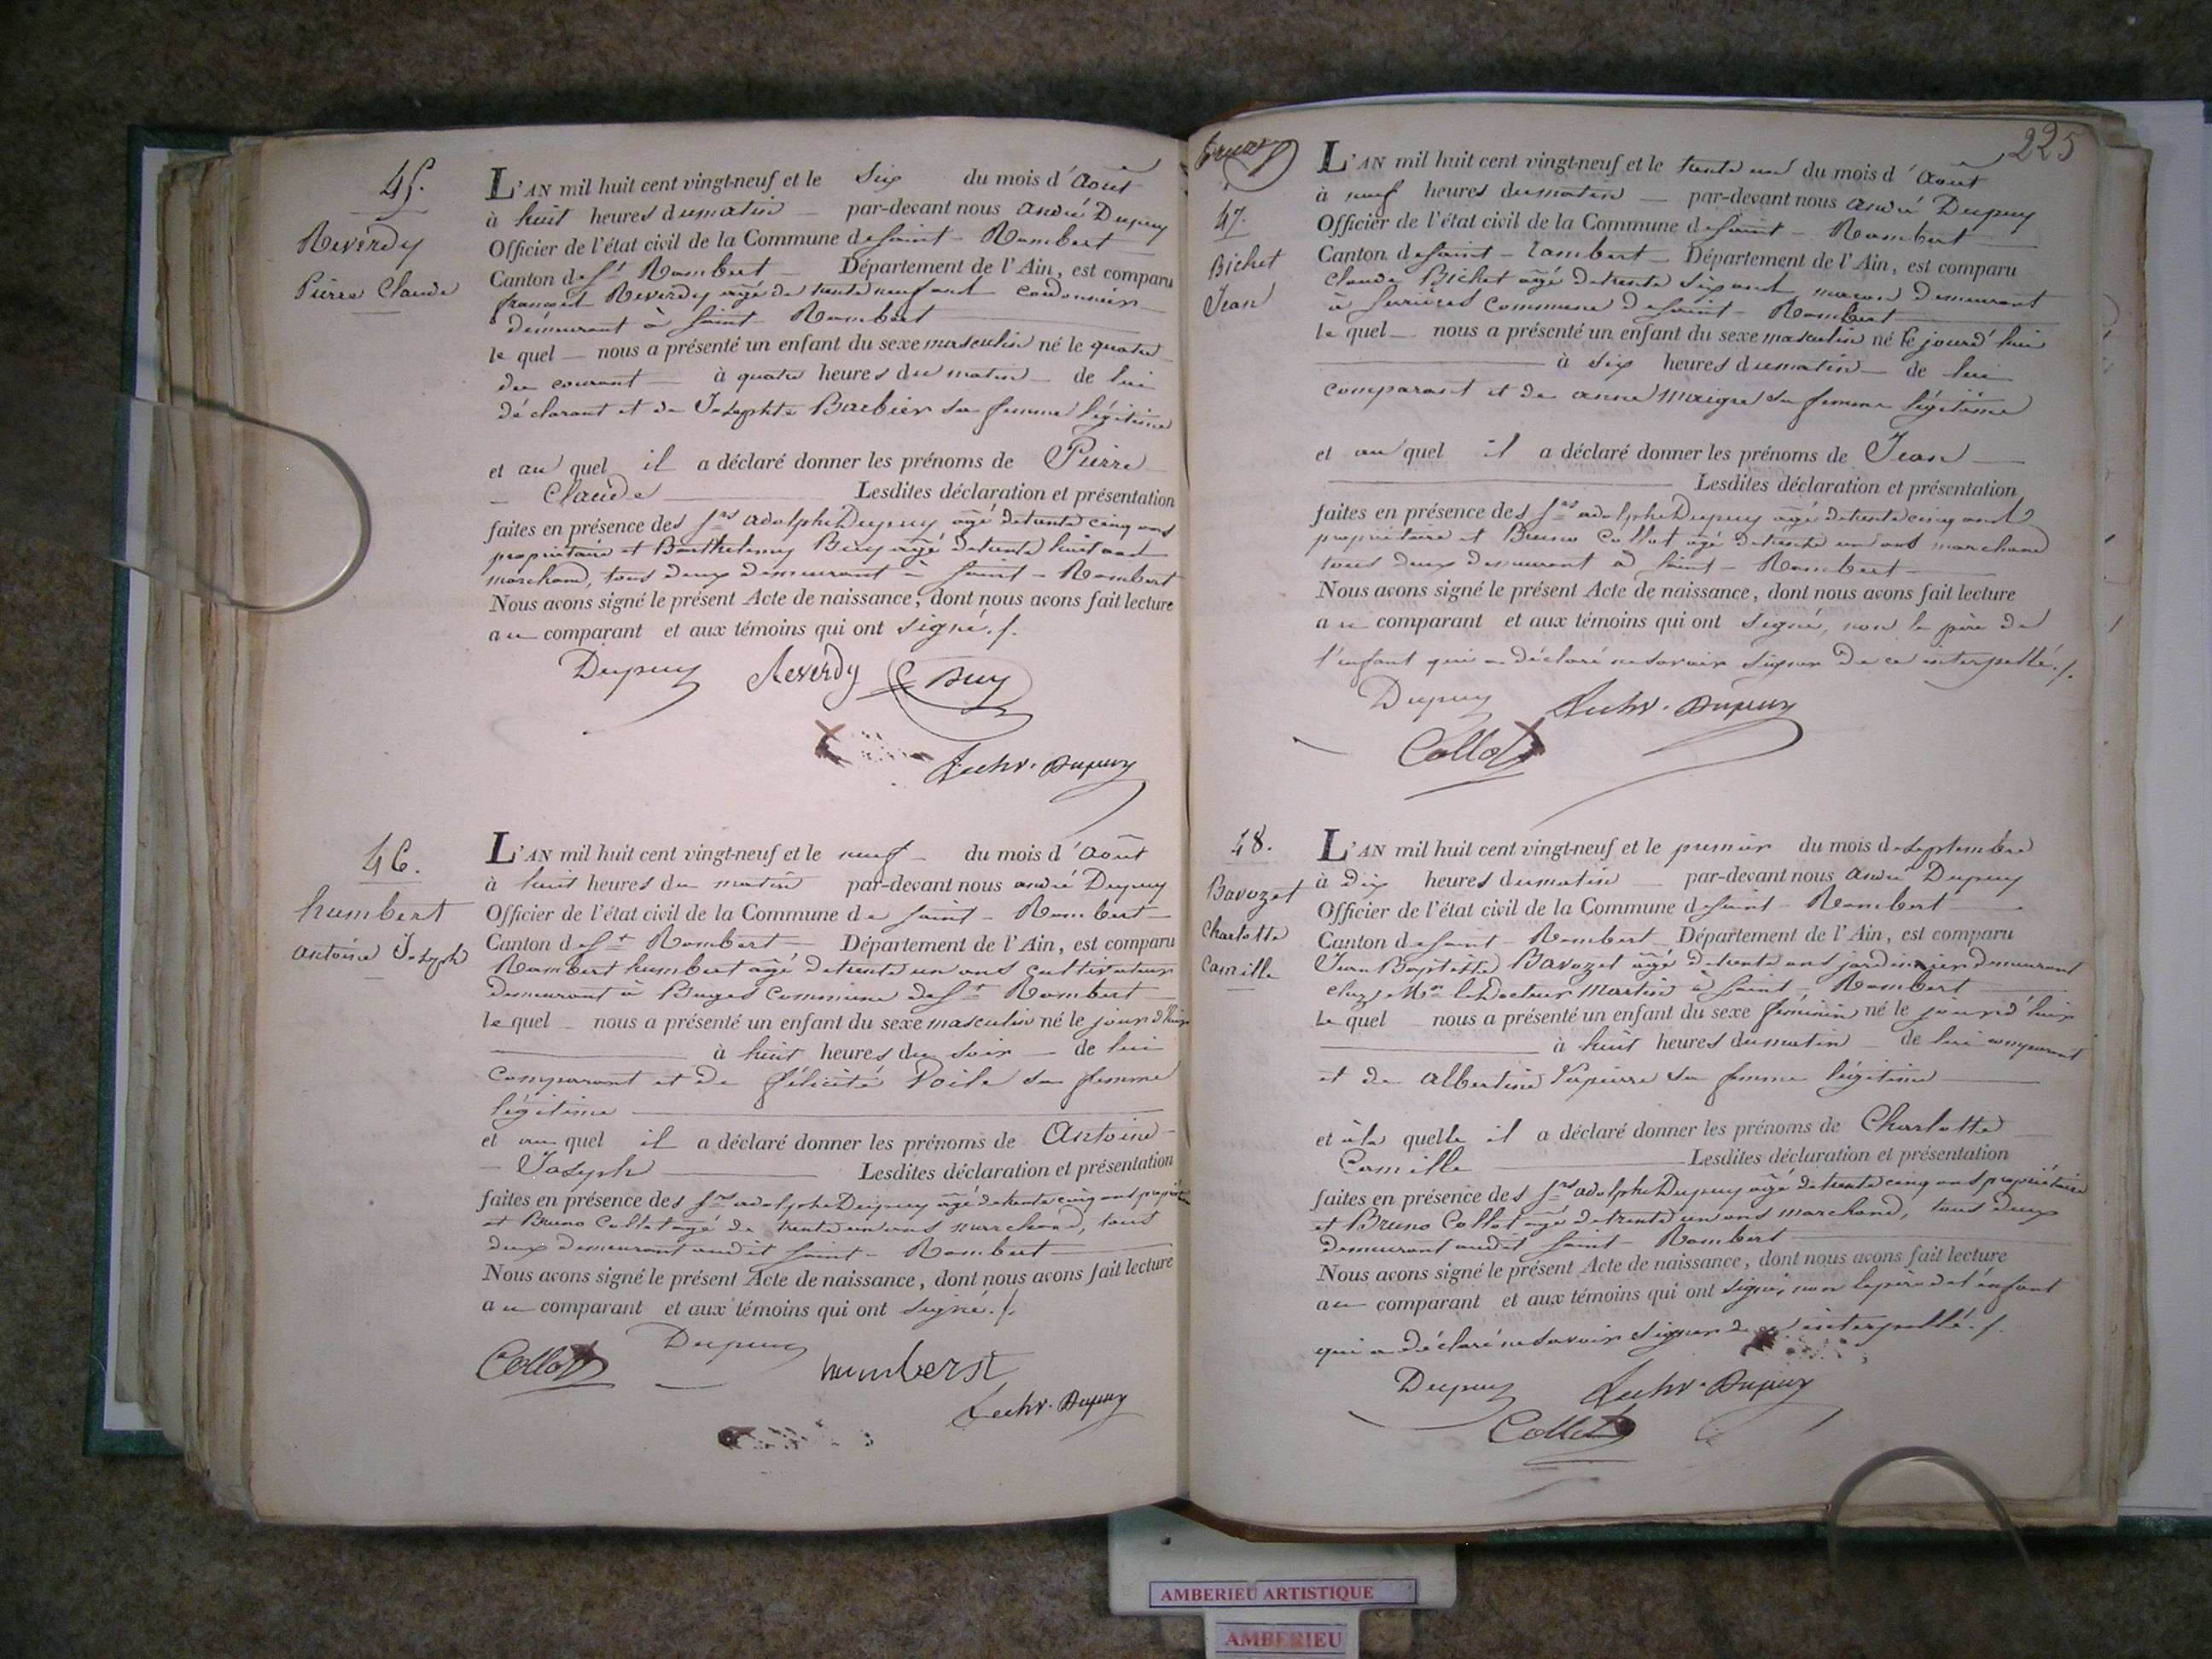 45.
Reverdy
Pierre Claude
L'AN mil huit cent vingt-neuf et le Six du mois d'Août
à huit heures du matin par-devant nous André Dupuy
Officier de l'état civil de la Commune de Saint-Rambert
Canton de St Rambert Département de l'Ain, est comparu
françois Reverdy agé de trente neuf ans cordonnier
demeurant à Saint-Rambert
le quel nous a présenté un enfant du sexe masculin né le quatre
du courant à quatre heures du matin de lui
déclarant et de Josephte Barbier sa femme légitime
et au quel il a déclaré donner les prénoms de Pierre
Claude Lesdites déclaration et présentation
faites en présence des Srs adolphe Dupuy agé de trente cinq ans
propriétaire et Barthelemy Buy agé de trente huit ans
marchand, tous deux demeurant à Saint-Rambert
Nous avons signé le présent Acte de naissance, dont nous avons fait lecture
au comparant et aux témoins qui ont signé./.
Dupuy Reverdy Buy
Dupuy
46.
humbert
antoine Joseph
L'AN mil huit cent vingt-neuf et le neuf du mois d'Août
à huit heures du matin par-devant nous andré Dupuy
Officier de l'état civil de la Commune de Saint-Rambert
Canton de St Rambert Département de l'Ain, est comparu
Rambert humbert agé de trente un ans cultivateur
demeurant à Buges Commune de St Rambert
le quel nous a présenté un enfant du sexe masculin né le jourd'hui
à huit heures du soir de lui
Comparant et de félicité sa femme
légitime
et au quel il a déclaré donner les prénoms de Antoine
Joseph Lesdites déclaration et présentation
faites en présence des Srs adolphe Dupuy agé de trente cinq ans propriétaire
et Bruno Collot agé de trente un ans marchand, tous
deux demeurant audit Saint-Rambert
Nous avons signé le présent Acte de naissance, dont nous avons fait lecture
au comparant et aux témoins qui ont signé./.
Collot Dupuy humberst
Dupuy
225
47.
Bichet
Jean
L'AN mil huit cent vingt-neuf et le trente un du mois d'Août
à neuf heures du matin par-devant nous André Dupuy
Officier de l'état civil de la Commune de Saint-Rambert
Canton de Saint-Rambert Département de l'Ain, est comparu
Claude Bichet agé de trente six ans maçon demeurant
à Serrières Commune de Saint-Rambert
le quel nous a présenté un enfant du sexe masculin né le jourd'hui
à six heures du matin de lui
comparant et de anne Maigre sa femme légitime
et au quel il a déclaré donner les prénoms de Jean
Lesdites déclaration et présentation
faites en présence des Srs adolphe Dupuy agé de trente cinq ans
propriétaire et Bruno Collot agé de trente un ans marchand
tous deux demeurant à Saint-Rambert
Nous avons signé le présent Acte de naissance, dont nous avons fait lecture
au comparant et aux témoins qui ont signé, non le père de
l'enfant qui a déclaré ne savoir signer de ce interpellé./.
Dupuy Dupuy
Collot
48.
Bavozet
Charlotte
Camille
L'AN mil huit cent vingt-neuf et le premier du mois de septembre
à dix heures du matin par-devant nous André Dupuy
Officier de l'état civil de la Commune de Saint-Rambert
Canton de Saint-Rambert Département de l'Ain, est comparu
Jean Baptiste Bavozet agé de trente ans jardinier demeurant
chez Mr le Docteur Martin à Saint-Rambert
le quel nous a présenté un enfant du sexe féminin né le jourd'hui
à huit heures du matin de lui comparant
et de albertine sa femme légitime
et à la quelle il a déclaré donner les prénoms de Charlotte
Camille Lesdites déclaration et présentation
faites en présence des Srs adolphe Dupuy agé de trente cinq ans propriétaire
et Bruno Collot agé de trente un ans marchand, tous deux
demeurant audit Saint-Rambert
Nous avons signé le présent Acte de naissance, dont nous avons fait lecture
au comparant et aux témoins qui ont signé, non le père de l'enfant
qui a déclaré ne savoir signer de ce interpellé./.
Dupuy Dupuy
Collot
AMBERIEU ARTISTIQUE
AMBERIEU